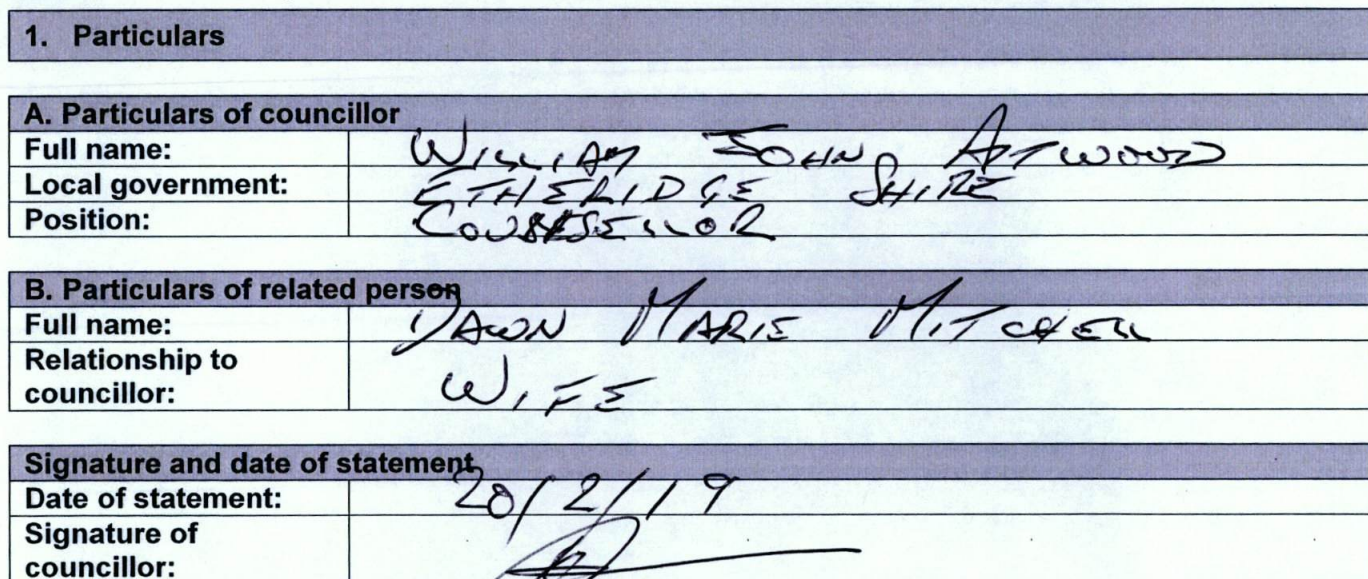 1. Particulars
A. Particulars of councillor
Full name: WILLIAM JOHN ATWOOD
Local government: ETHERIDGE SHIRE
Position:
B. Particulars of related person
Full name: DAWN MARIE MITCHELL
Relationship to
councillor: WIFE
Signature and date of statement
Date of statement: 20/2/19
Signature of
councillor: